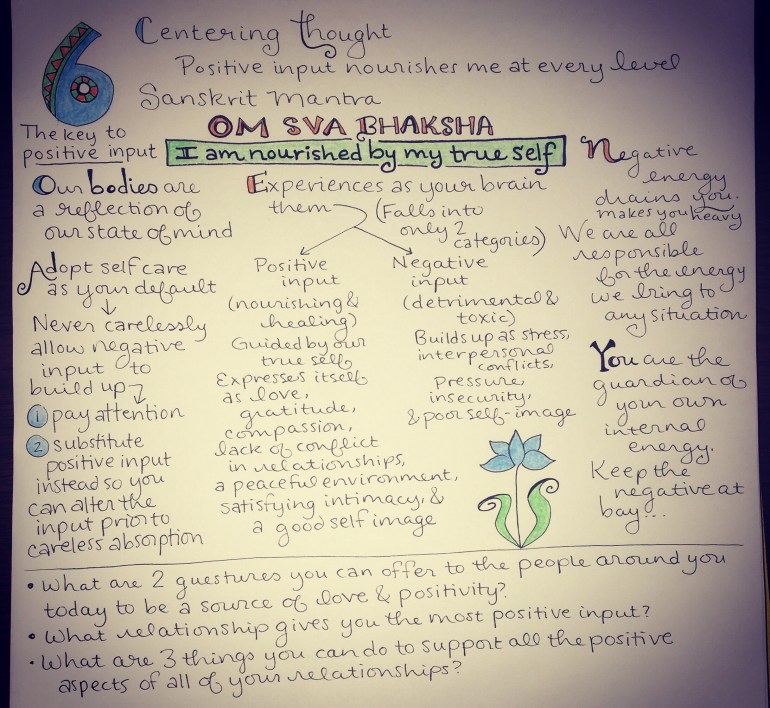 6
Centering Thought
Positive input nourishes me at every level
Sanskrit Mantra
OM SVA BHAKSHA
I am nourished by my true self
The key to
positive input
Our bodies are
a reflection of
our state of mind
Adopt self care
as your default
Never carelessly
allow negative
input to
build up
1 pay attention
2 substitute
positive input
instead so you
can alter the
input prior to
careless absorption
Experiences as your brain
them
(Falls into
only 2
categories)
Positive
input
(nourishing &
healing)
Guided by our
true self
Expresses itself
as love,
gratitude,
compassion,
lack of conflict
in relationships,
a peaceful environment,
satisfying intimacy, &
a good self image
Negative
input
(detrimental &
toxic)
Builds up as stress,
interpersonal
conflicts,
Pressure,
insecurity,
& poor self-image
Negative
energy
drains you.
makes you heavy
We are all
responsible
for the energy
we bring to
any situation
You are the
guardian of
your own
internal
energy.
Keep the
negative at
bay...
• What are 2 guestures you can offer to the people around you
today to be a source of love & positivity?
• What relationship gives you the most positive input?
• What are 3 things you can do to support all the positive
aspects of all of your relationships?